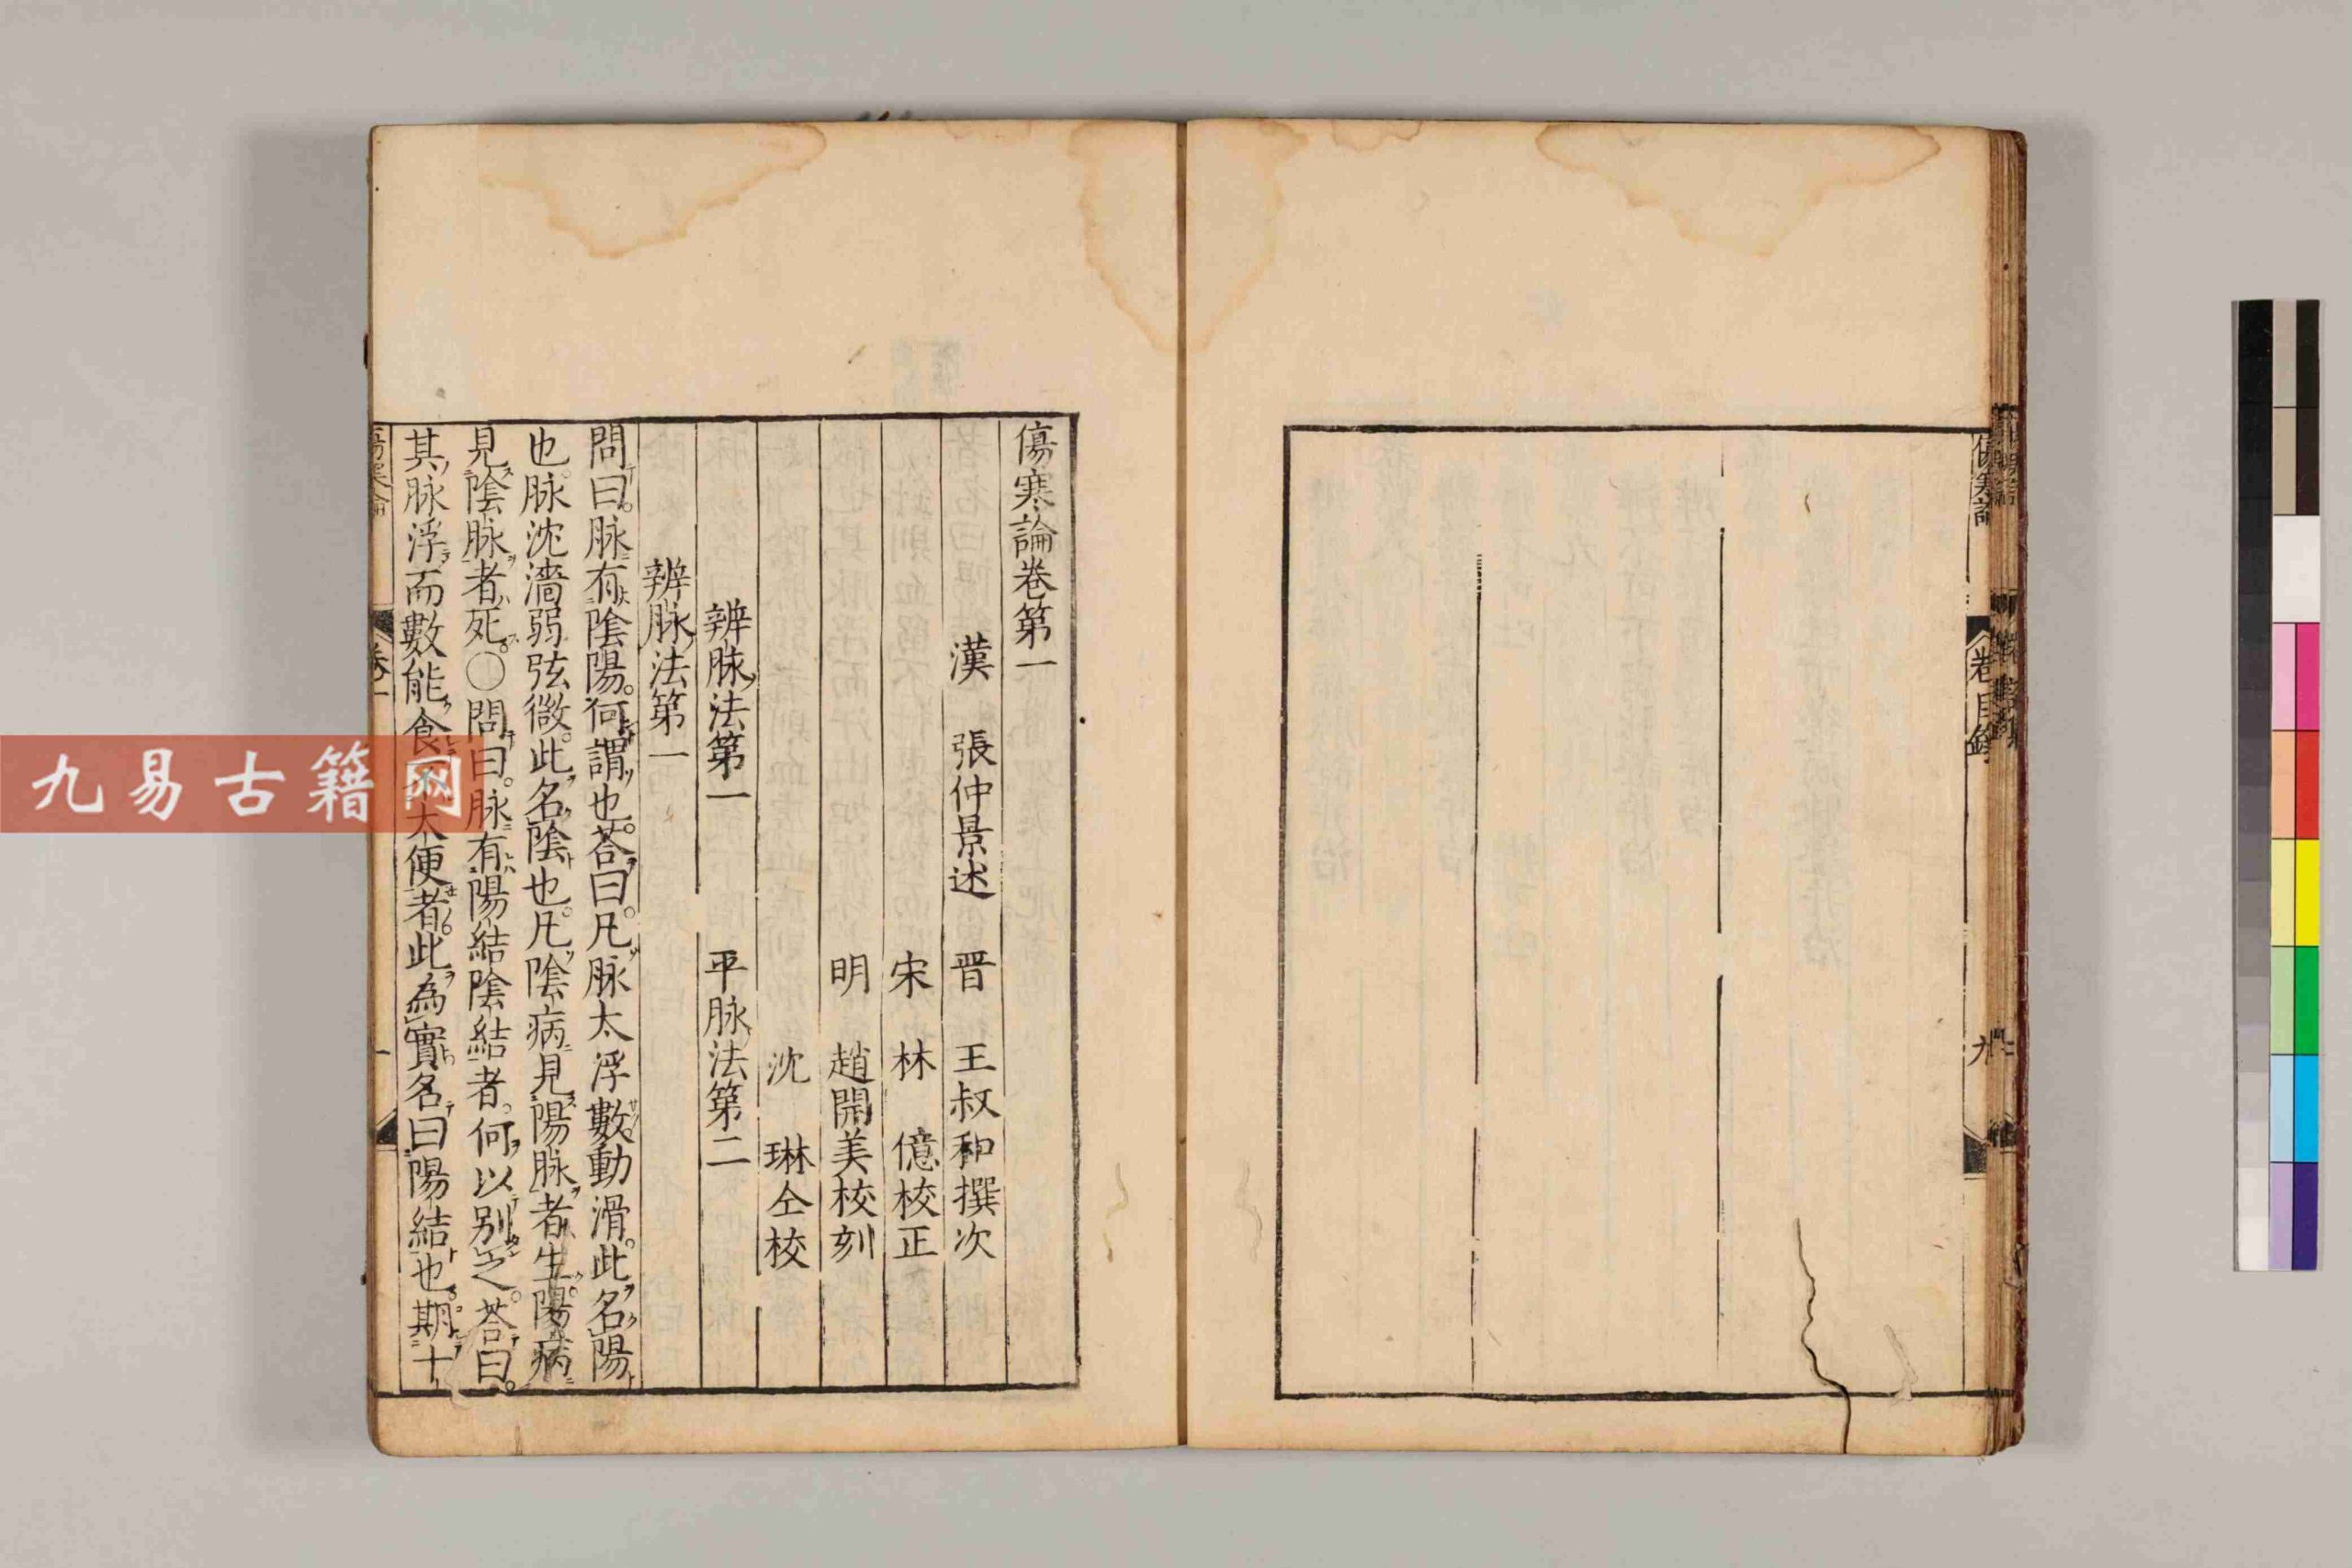 傷寒論
卷目錄
九
傷寒論卷第一
漢 張仲景述 晋 王叔和撰次
宋 林 億校正
明 趙開美校刻
沈 琳仝校
辨脉法第一 平脉法第二
辨脉法第一
問曰。脉有陰陽。何謂也。荅曰。凡脉太浮數動滑。此名陽
也。脉沈濇弱弦微。此名陰也。凡陰病見陽脉者生。陽病
見陰脉者死。○問曰。脉有陽結陰結者。何以別之。荅曰。
其脉浮而數能食不大便者。此為實名曰陽結也。期十
傷寒論
卷一
一
九易古籍网